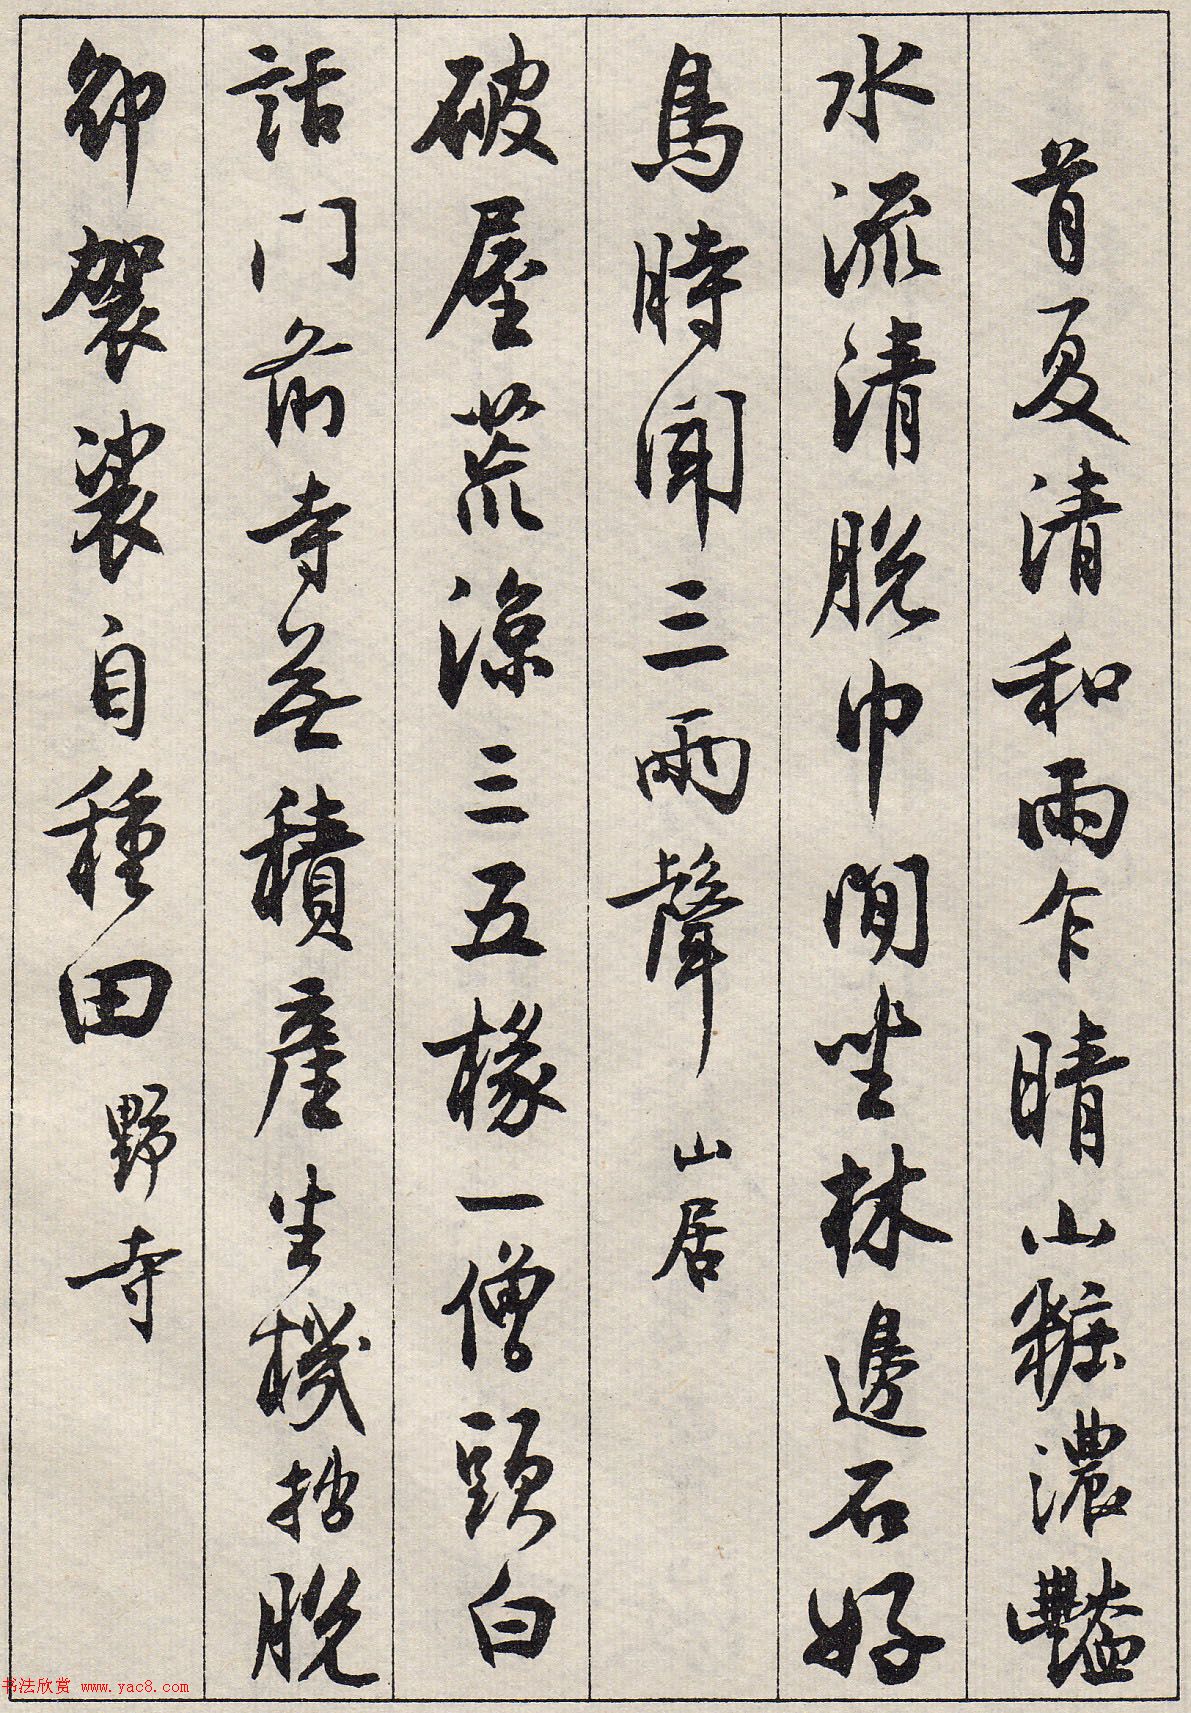 首夏清和雨乍晴山粧濃豔
水流清脫巾閒坐林邊石好
鳥時聞三兩聲 山居
破屋荒涼三五椽一僧頭白
話门前寺無積產生機拙脫
卻袈裟自種田 野寺
书法欣赏 www.yac8.com